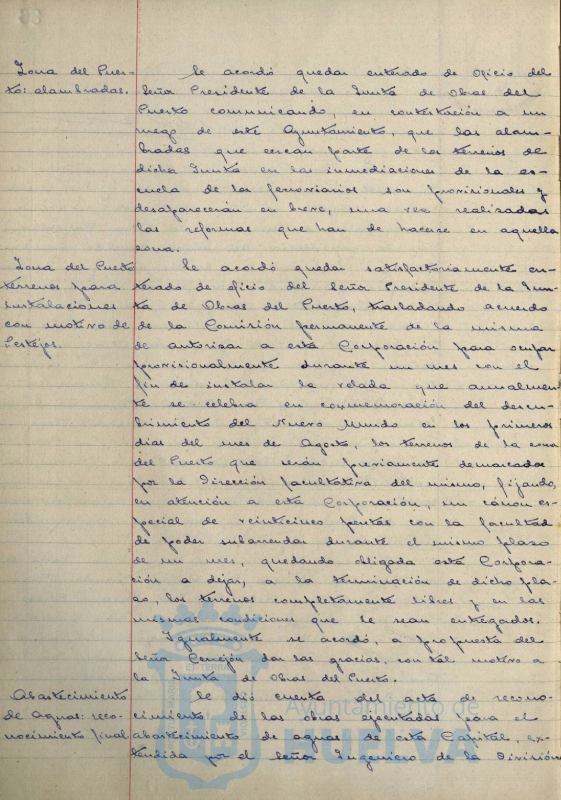 Zona del Puer-
to: alambradas.
Se acordó quedar enterado de oficio del
Señor Presidente de la Junta de Obras del
Puerto comunicando, en contestación a un
ruego de este Ayuntamiento, que las alam-
bradas que cercan parte de los terrenos de
dicha Junta en las inmediaciones de la es-
cuela de los ferroviarios son provisionales y
desaparecerán en breve, una vez realizadas
las reformas que han de hacerse en aquella
zona.
Zona del Puerto
terrenos para
instalaciones
con motivo de
festejos.
Se acordó quedar satisfactoriamente en-
terado de oficio del Señor Presidente de la Jun-
ta de Obras del Puerto, trasladando acuerdo
de la Comisión permanente de la misma
de autorizar a esta Corporación para ocupar
provisionalmente durante un mes con el
fin de instalar la velada que anualmen-
te se celebra en conmemoración del descu-
brimiento del Nuevo Mundo en los primeros
días del mes de Agosto, los terrenos de la zona
del Puerto que serán previamente demarcados
por la Dirección facultativa del mismo, fijando,
en atención a esta Corporación, un cánon es-
pecial de veinticinco pesetas con la facultad
de poder subarrendar durante el mismo plazo
de un mes, quedando obligada esta Corpora-
ción a dejar, a la terminación de dicho pla-
zo, los terrenos completamente libres y en las
mismas condiciones que le sean entregados.
Igualmente se acordó, a propuesta del
Señor Cerrejón dar las gracias, con tal motivo a
la Junta de Obras del Puerto.
Abastecimiento
de Aguas: reco-
nocimiento final
Se dió cuenta del acta de recono-
cimiento de las obras ejecutadas para el
abastecimiento de aguas de esta Capital, ex-
tendida por el Señor Ingeniero de la División
Ayuntamiento de
HUELVA